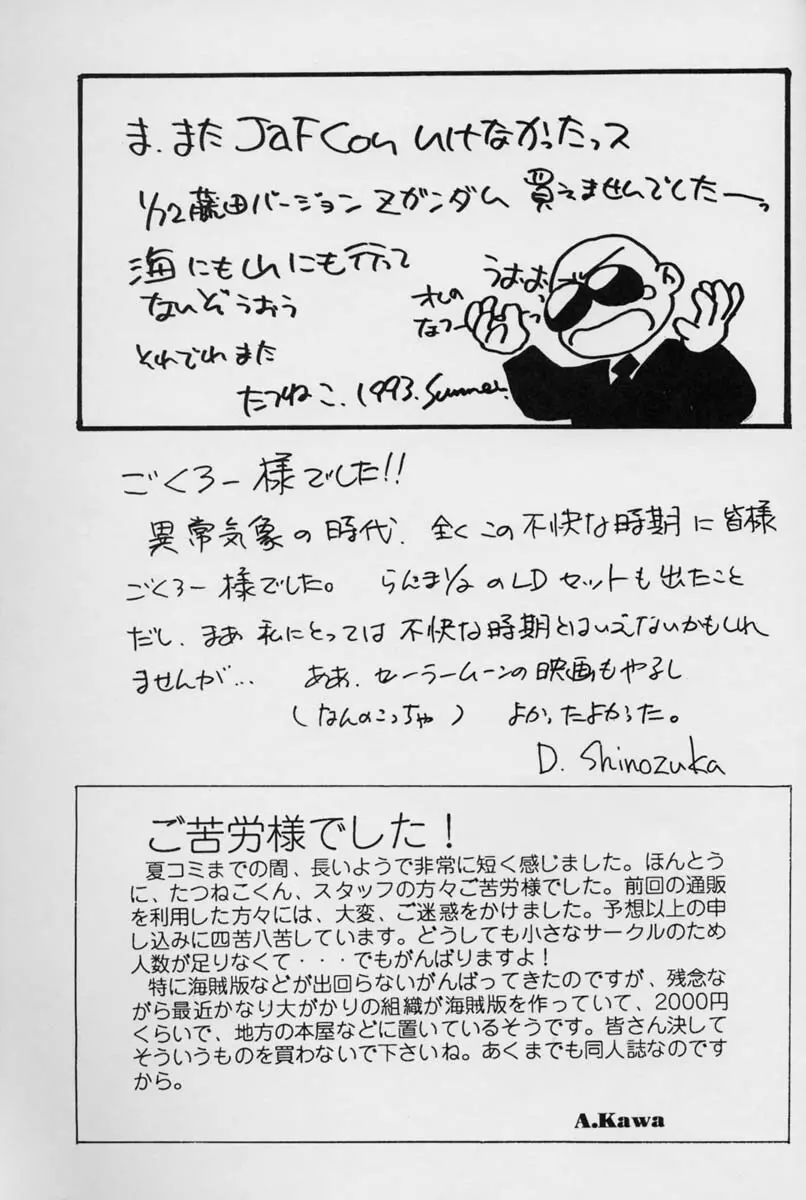 ま、また JaFCon いけなかったっス
1/72 藤田バージョン Zガンダム 買えませんでしたーっ
海にも山にも行って
ないぞうおう
うおおっ
オレの
なつーっ
それでわまた
たつねこ. 1993. Summer.
ごくろー様でした!!
異常気象の時代、全くこの不快な時期に皆様
ごくろー様でした。 らんま1/2のLDセットも出たこと
だし、まあ私にとっては不快な時期とはいえないかもしれ
ませんが… ああ、セーラームーンの映画もやるし
(なんのこっちゃ) よかったよかった。
D. Shinozuka
ご苦労様でした!
夏コミまでの間、長いようで非常に短く感じました。ほんとう
に、たつねこくん、スタッフの方々ご苦労様でした。前回の通販
を利用した方々には、大変、ご迷惑をかけました。予想以上の申
し込みに四苦八苦しています。どうしても小さなサークルのため
人数が足りなくて・・・でもがんばりますよ!
特に海賊版などが出回らないがんばってきたのですが、残念な
がら最近かなり大がかりの組織が海賊版を作っていて、2000円
くらいで、地方の本屋などに置いているそうです。皆さん決して
そういうものを買わないで下さいね。あくまでも同人誌なのです
から。
A.Kawa